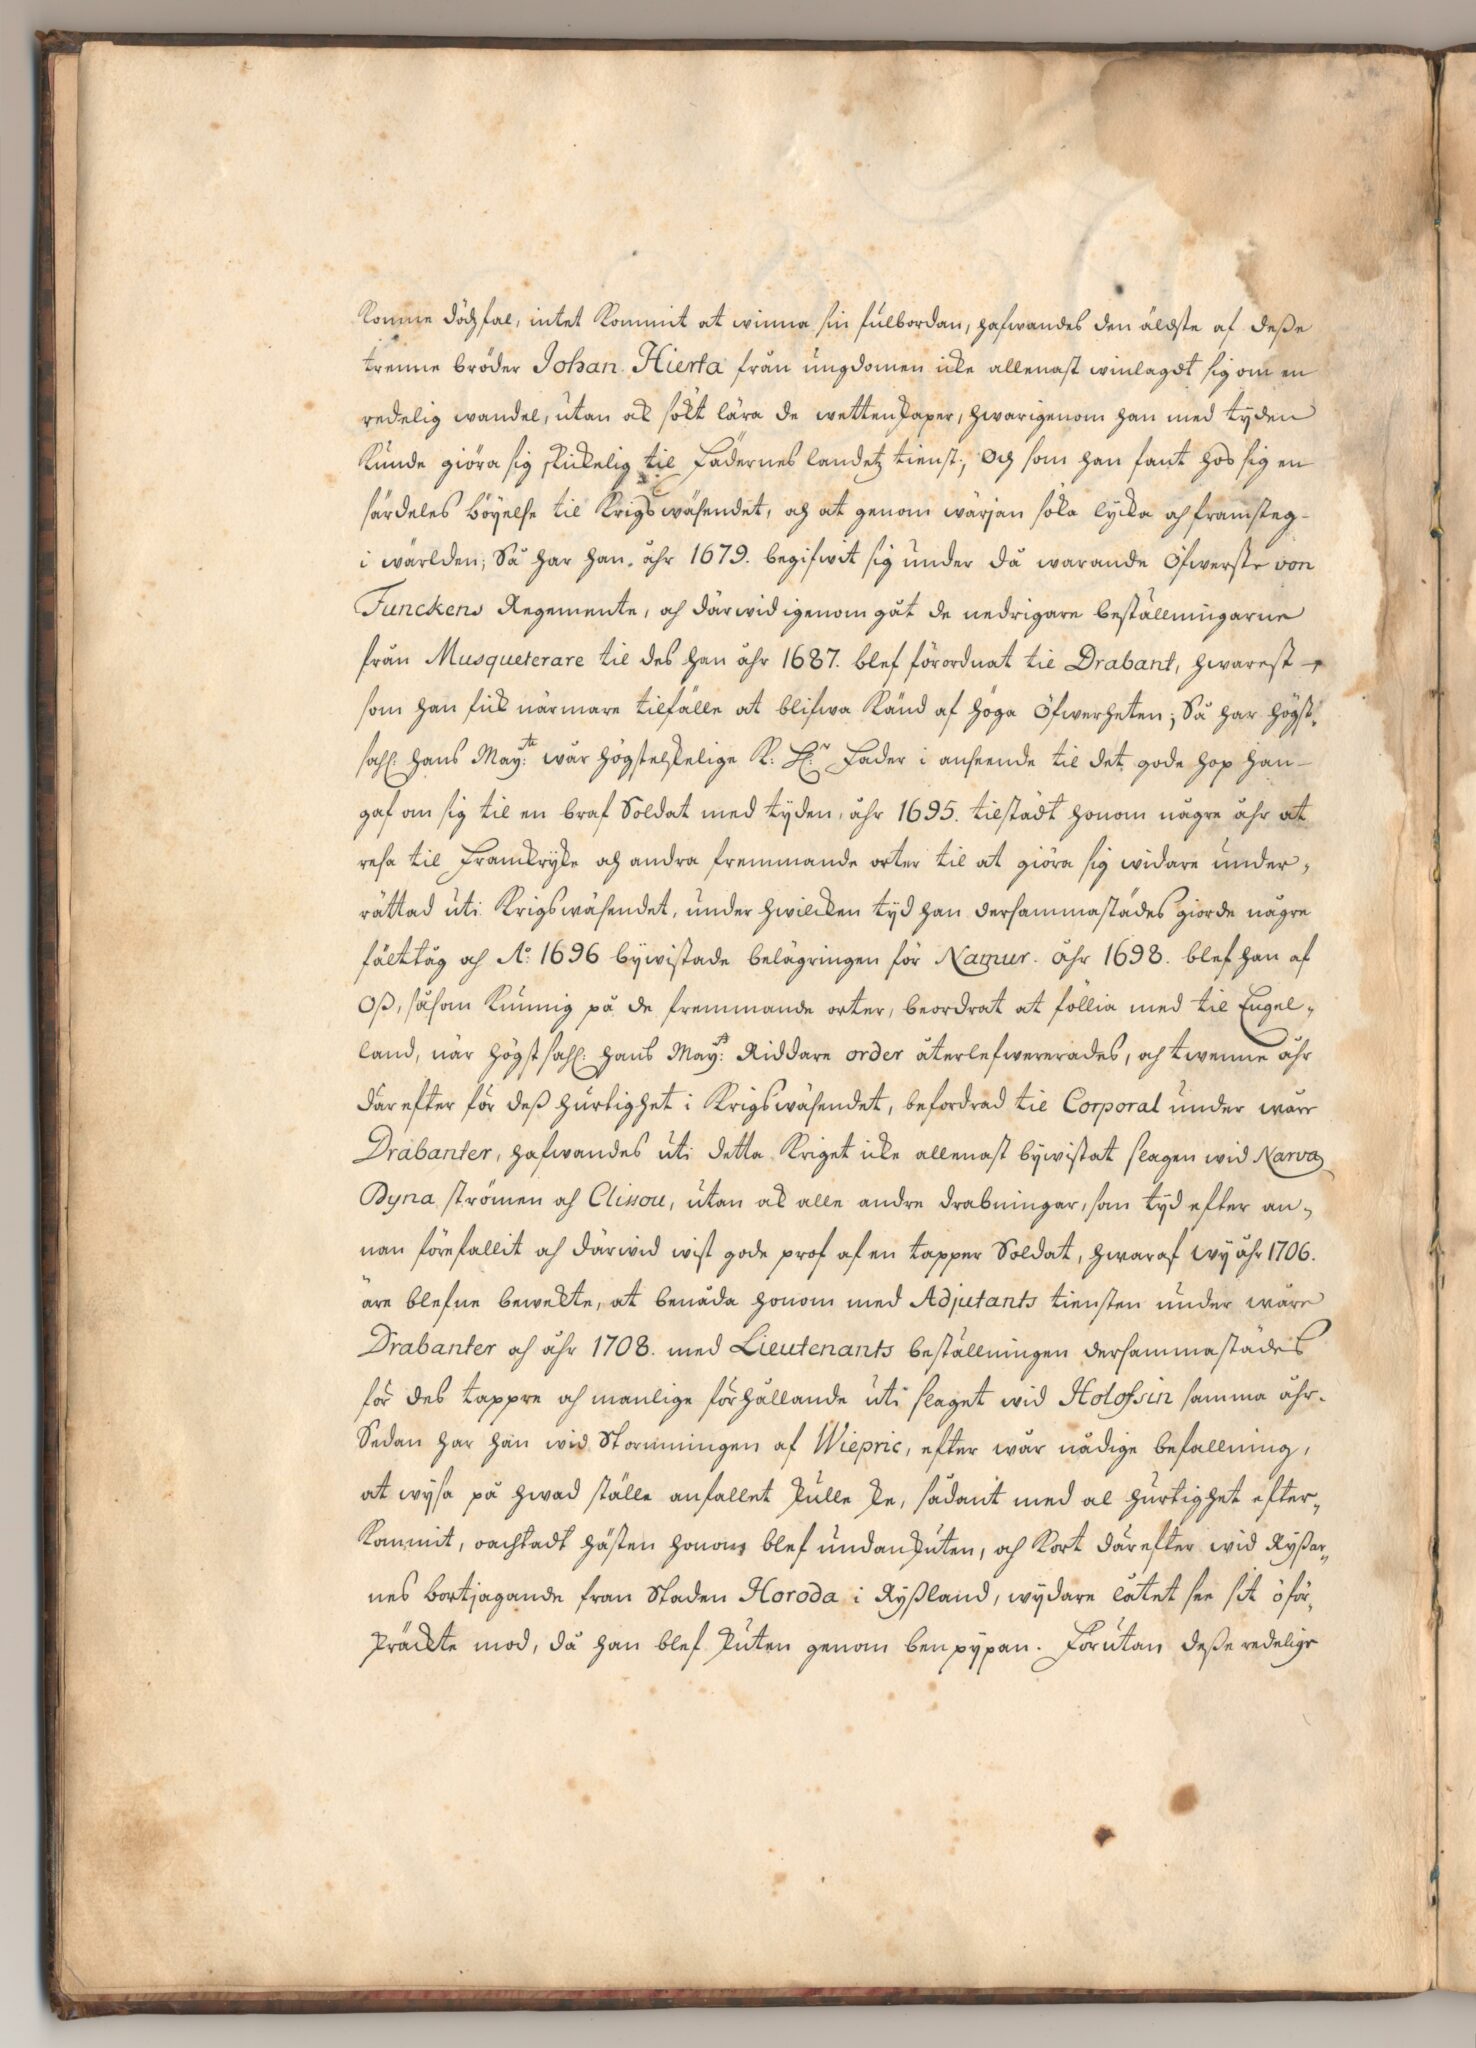 komne dödzfal, intet kommit at winna sin fulbordan, hafwandes den äldste af deße
trenne bröder Johan Hierta från ungdomen icke allenast winlagdt sig om en
redelig wandel, utan ock sökt lära de wettenskaper, hwarigenom han med tyden
kunde giöra sig skickelig til Fädernes landetz tienst; Och som han fant hos sig en
särdeles böyelse til Krigswäsendet, och at genom wärjan söka lycka och framsteg
i wärlden; Så har han åhr 1679. begifwit sig under då warande Öfwerste von
Funckens Regemente, och därwid igenomgåt de nedrigare beställningarne
från Musqueterare til des han åhr 1687. blef förordnat til Drabant, hwarest
som han fick närmare tilfälle at blifwa känd af höga Öfwerheten; Så har högst-
sahl: hans May:tt wår högstelskelige K: H:r Fader i anseende til det gode hop han
gaf om sig til en braf Soldat med tyden, åhr 1695. tilstådt honom någre åhr at
resa til Franckryke och andra fremmande orter til at giöra sig widare under-
rättad uti Krigswäsendet, under hwilcken tyd han dersammastädes giorde någre
fälttåg och A:o 1696 bywistade belägringen för Namur. Åhr 1698. blef han af
Oß, såsom kunnig på de fremmande orter, beordrat at föllia med til Engel-
land, när högstsahl: hans May:tt Riddare order återlefwererades, och twenne åhr
därefter för deß hurtighet i Krigswäsendet, befordrad til Corporal under wåre
Drabanter, hafwandes uti detta Kriget icke allenast bywistat slagen wid Narva
Dyna strömen och Clissou, utan ock alle andre drabningar, som tyd efter an-
nan förefallit och därwid wist gode prof af en tapper Soldat, hwaraf wy åhr 1706.
äre blefne bewekte, at benåda honom med Adjutants tiensten under wåre
Drabanter och åhr 1708. med Lieutenants beställningen dersammastädes
för des tappre och manlige förhållande uti slaget wid Holofsin samma åhr.
Sedan har han wid Stormningen af Wiepric, efter wår nådige befallning,
at wysa på hwad ställe anfallet skulle ske, sådant med al hurtighet efter-
kommit, oachtadt hästen honom blef undanskuten, och kort därefter wid Ryßar-
nes bortjagande fran Staden Horoda i Ryßland, wydare låtet see sit oför-
skräckte mod, då han blef skuten genom benpypan. Förutan deße redelige